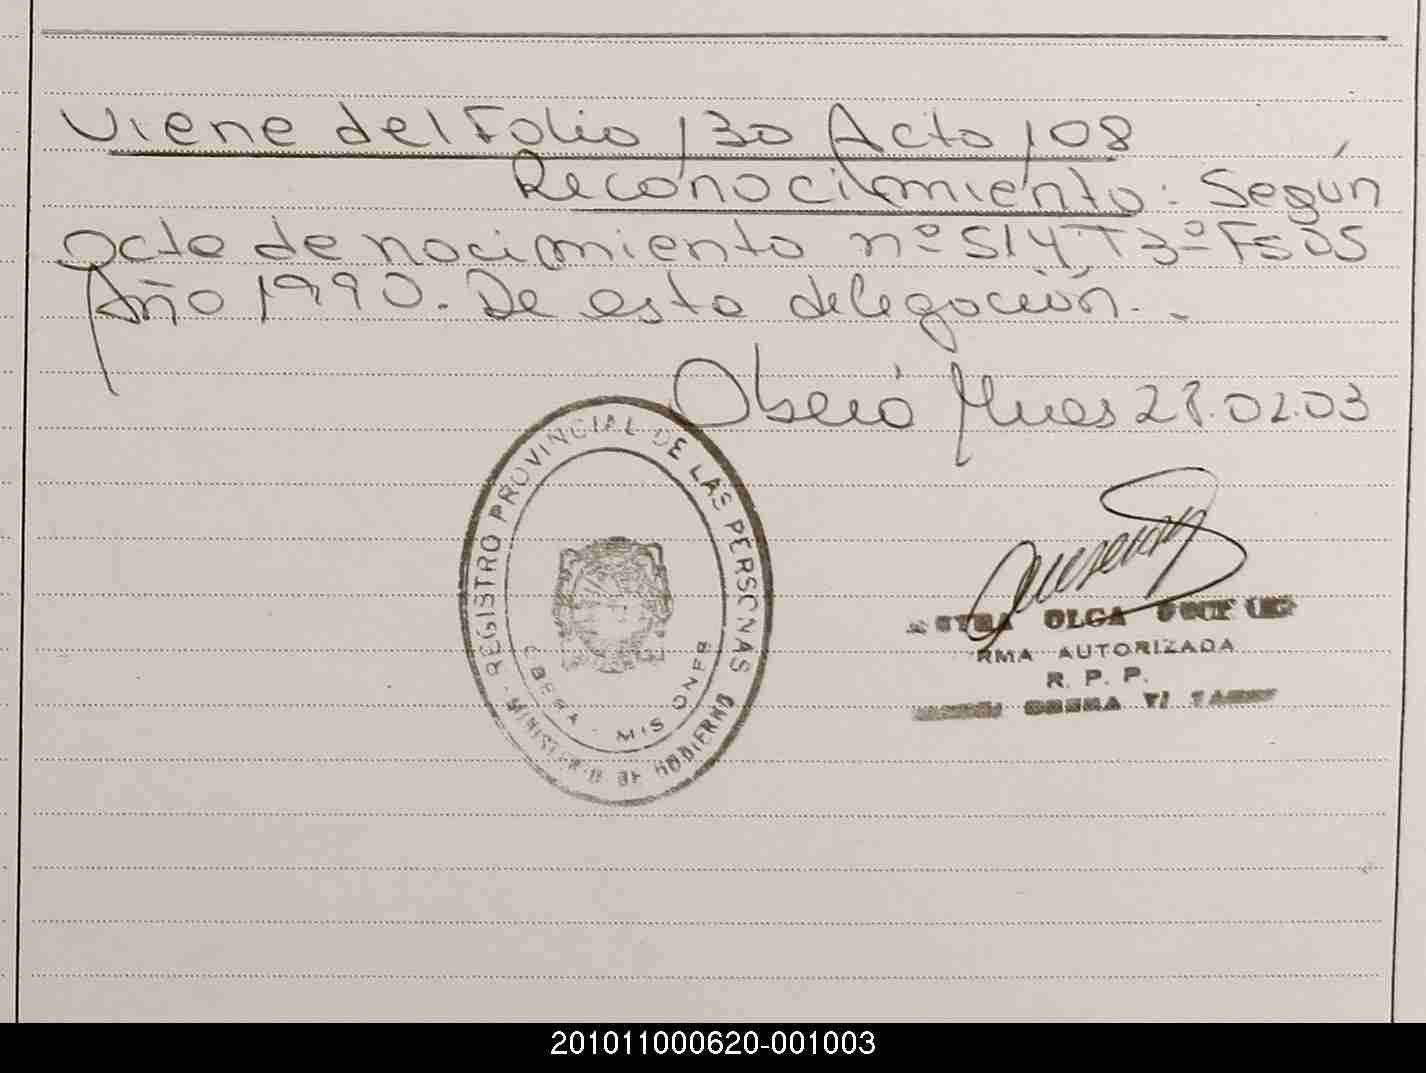 Viene del Folio 130 Acta 108
Reconocimiento: Según
acta de nacimiento nº 514 T3º Fs 05
Año 1990. De esta delegación.-
Oberá Mnes 28.02.03
REGISTRO PROVINCIAL DE LAS PERSONAS
MINISTERIO DE GOBIERNO
OBERA - MISIONES
OLGA
FIRMA AUTORIZADA
R. P. P.
OBERA
201011000620-001003